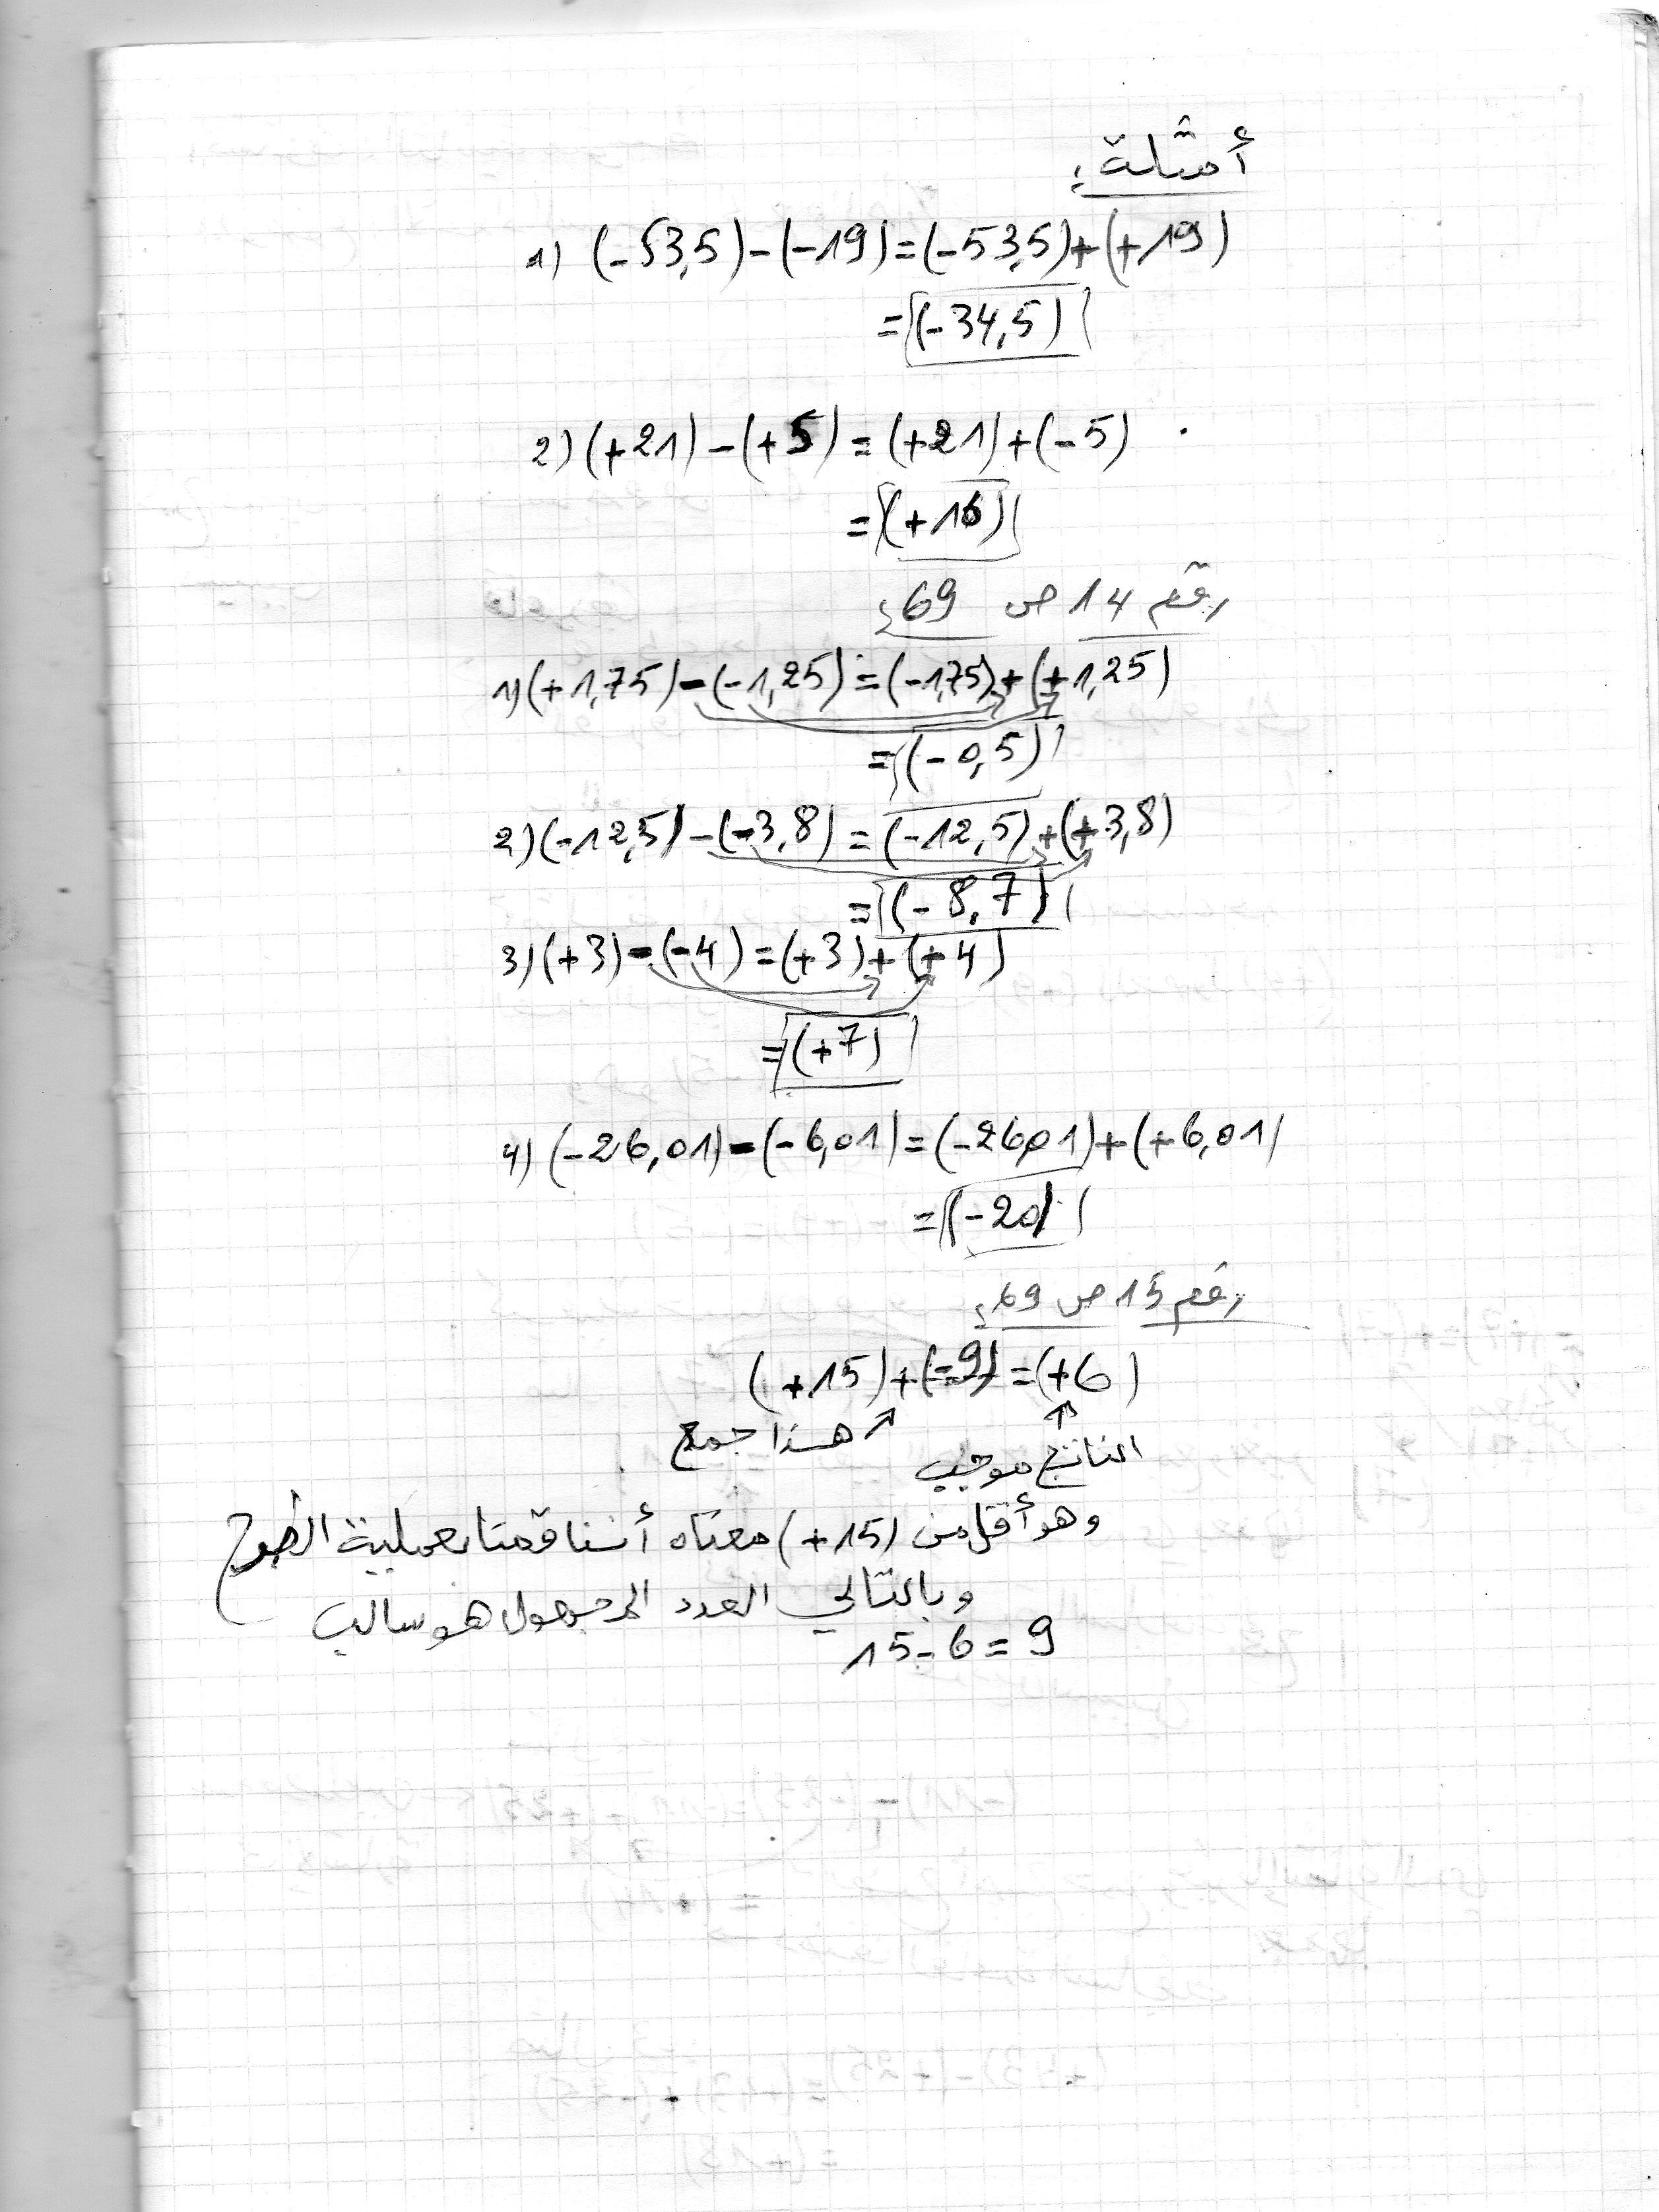 أمثلة:
1) (-53,5)-(-19)=(-53,5)+(+19)
=(-34,5)
2) (+21)-(+5)=(+21)+(-5)
=(+16)
رقم 14 ص 69:
1) (+1,75)-(-1,25)=(-1,75)+(+1,25)
=(-0,5)
2) (-12,5)-(-3,8)=(-12,5)+(+3,8)
=(-8,7)
3) (+3)-(-4)=(+3)+(+4)
=(+7)
4) (-26,01)-(-6,01)=(-26,01)+(+6,01)
=(-20)
رقم 15 ص 69:
(+15)+(-9)=(+6)
هذا جمع
الناتج موجب
وهو أقل من (+15) معناه أننا قمنا بعملية الطرح
وبالتالي العدد المجهول هو سالب
15-6=9